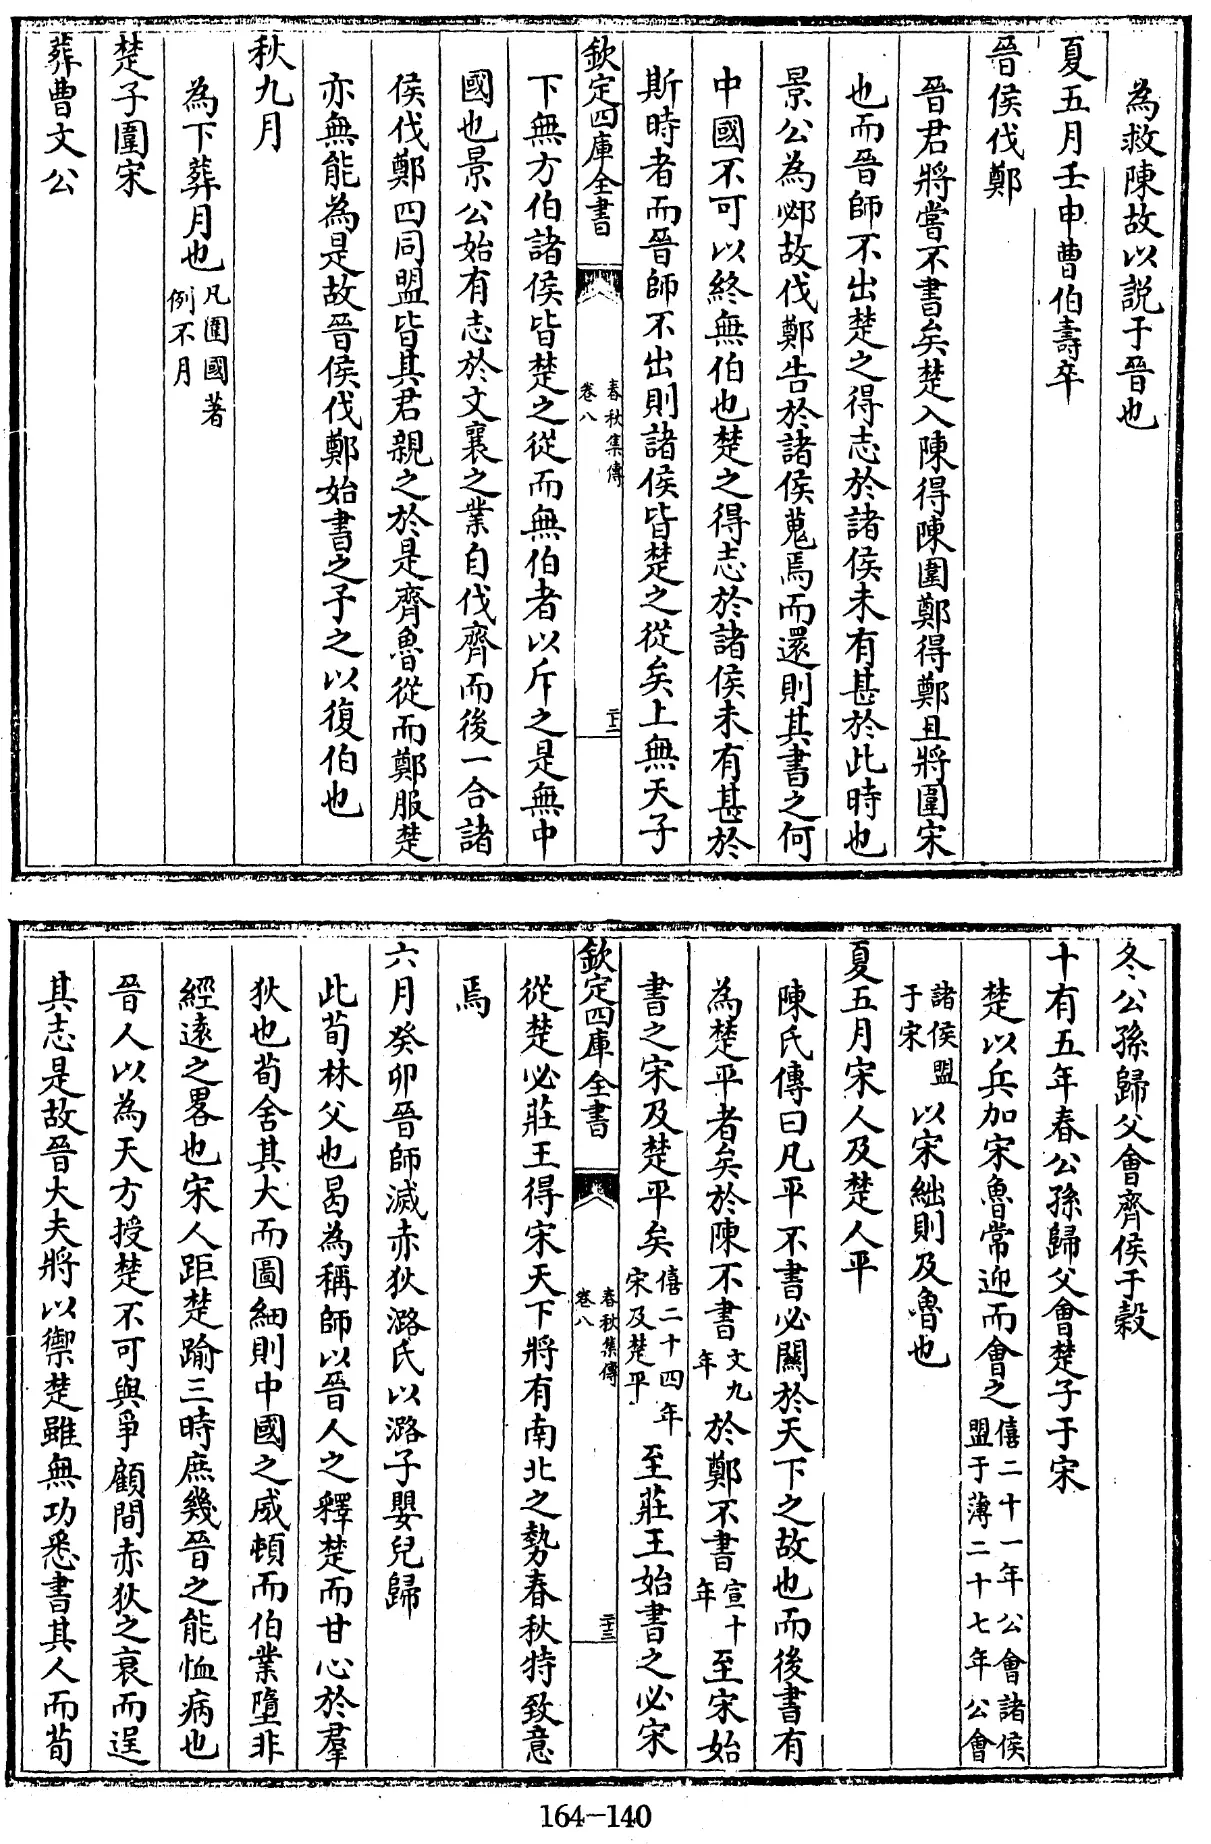 為救陳故以説于晉也
夏五月壬申曹伯壽卒
晉侯伐鄭
晉君將嘗不書矣楚入陳得陳圍鄭得鄭且將圍宋
也而晉師不出楚之得志於諸侯未有甚於此時也
景公為邲故伐鄭告於諸侯蒐焉而還則其書之何
中國不可以終無伯也楚之得志於諸侯未有甚於
斯時者而晉師不出則諸侯皆楚之從矣上無天子
欽定四庫全書
春秋集傳
卷八
二十二
下無方伯諸侯皆楚之從而無伯者以斥之是無中
國也景公始有志於文襄之業自伐齊而後一合諸
侯伐鄭四同盟皆其君親之於是齊魯從而鄭服楚
亦無能為是故晉侯伐鄭始書之予之以復伯也
秋九月
為下葬月也凡圍國著
例不月
楚子圍宋
葬曹文公
冬公孫歸父會齊侯于穀
十有五年春公孫歸父會楚子于宋
楚以兵加宋魯常迎而會之僖二十一年公會諸侯
盟于薄二十七年公會
諸侯盟
于宋
以宋絀則及魯也
夏五月宋人及楚人平
陳氏傳曰凡平不書必關於天下之故也而後書有
為楚平者矣於陳不書文九
年
於鄭不書宣十
年
至宋始
書之宋及楚平矣僖二十四年
宋及楚平
至莊王始書之必宋
欽定四庫全書
春秋集傳
卷八
二十三
從楚必莊王得宋天下將有南北之勢春秋特致意
焉
六月癸卯晉師滅赤狄潞氏以潞子嬰兒歸
此荀林父也曷為稱師以晉人之釋楚而甘心於羣
狄也荀舍其大而圖細則中國之威頓而伯業墮非
經遠之畧也宋人距楚踰三時庶幾晉之能恤病也
晉人以為天方授楚不可與爭顧間赤狄之衰而逞
其志是故晉大夫將以禦楚雖無功悉書其人而荀
164-140